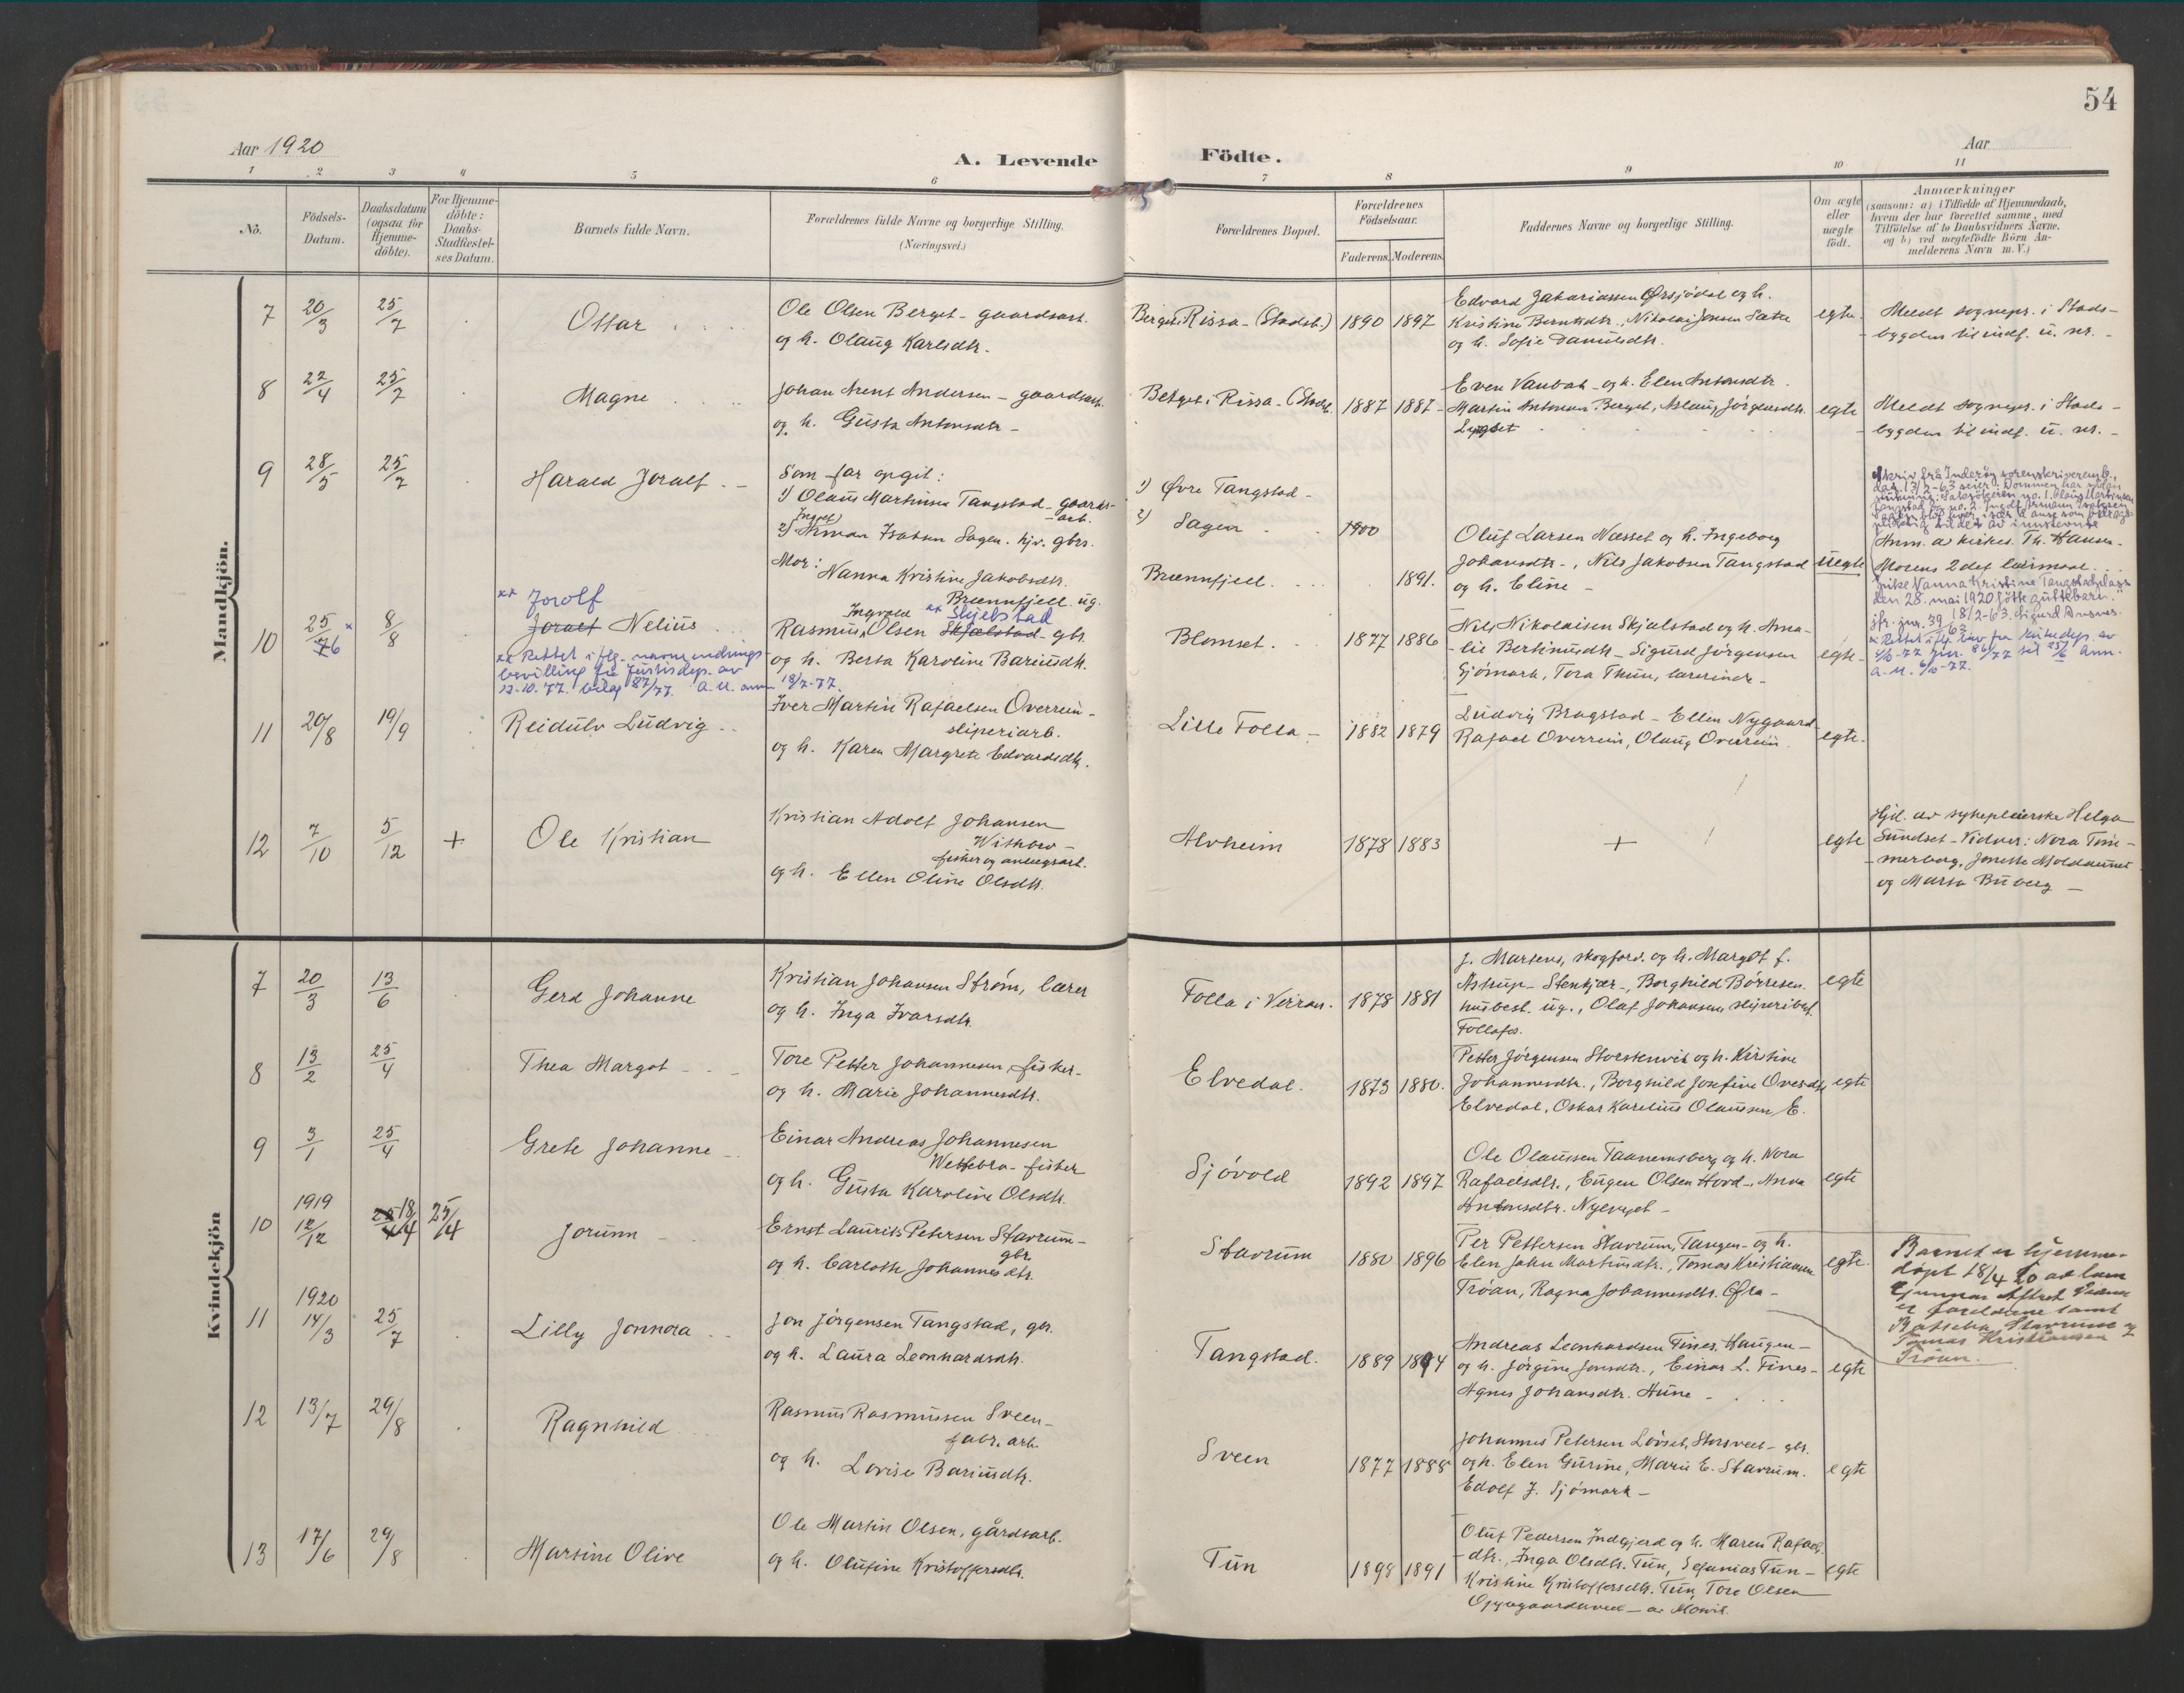 54
Aar 1920
A. Levende Födte.
Aar
1 2 3 4 5 6 7 8 9 10 11
No.
Födsels-Datum.
Daabsdatum (ogsaa for Hjemmedöbte).
For Hjemmedöbte: Daabs-Stadfæstelses Datum.
Barnets fulde Navn.
Forældrenes fulde Navne og borgerlige Stilling.
(Næringsvei.)
Forældrenes Bopæl.
Forældrenes Födselsaar.
Faderens. Moderens.
Faddernes Navne og borgerlige Stilling.
Om ægte eller uægte födt.
Anmærkninger
(saasom: a) i Tilfælde af Hjemmedaab,
hvem der har forrettet samme, med
Tilföielse af to Daabsvidners Navne.
og b) ved uægtefödte Börn An-
melderens Navn m. V.)
Mandkjön.
7 20/3 25/7
Ottar
Ole Olsen Berget - gaardsarb.
og h. Olaug Karlsdtr.
Berget i Rissa - (Stadsb.) 1890 1897
Edvard Zakariassen Ørsjödal og h.
Kristine Berntsdtr., Nikolai Jensen Sæter
og h. Sofie Danielsdtr.
egte
Meldt sognepr. i Stads-
bygden til indf. u. nr. -
8 22/4 25/7
Magne
Johan Arent Andersen - gaardsarb.
og h. Gusta Antonsdtr -
Berget i Rissa - (Stadsb. 1887 1887 -
Even Vanbak - og h. Elen Antonsdtr.
Martin Antonsen Berget, Aslaug Jörgensdtr.
egte
Meldt sognepr. i Stads-
bygden til indf. u. nr. -
9 28/5 25/7
Harald Joralf. -
Som far opgit:
1) Olaus Martinsen Tangstad - gaards-
arb.
Ingolf
2) Arman Isaksen Sagen. hjv. gbrs.
Mor: Nanna Kristine Jakobsdtr.
Brænnfjell. ug.
1) Øvre Tangstad -
2) Sagen 1900
Brænnfjell. 1891.
Oluf Larsen Næsset og h. Ingeborg
Johansdtr -, Nils Jakobsen Tangstad
og h. Eline -
Uegte
Anm. av kirkev. Th. Hansen.
Morens 2det leiermaal
den 28. mai 1920 fötte guttebarn."
10 25/7 6 x 8/8
xx Jorolf
Joralf Nelius
xx Rettet iflg. navneendrings-
bevilling fra Justisdep. av
12-10.77. bilag 87/77. A.U. anm 18/7-77.
Ingvald xx Skjelstad
Rasmus Olsen Skjelstad - gbr.
og h. Berta Karoline Bariusdtr.
Blomset. 1877 1886
Nils Nikolaisen Skjelstad og h. Ama-
lie Bertinusdtr - Sigurd Jörgensen
Sjömark, Tora Thun, lærerinde -
egte -
11 20/8 19/9
Reidulv Ludvig
Iver Martin Rafaelsen Overrein -
sliperiarb.
og h. Karen Margrete Edvardsdtr.
Lille Folla - 1882 1879
Ludvig Bragstad - Ellen Nygaard -
Rafael Overrein, Olaug Overrein
egte.
12 7/10 5/12 +
Ole Kristian
Kristian Adolf Johansen
Withbro -
fisker og anlegsarb.
og h. Ellen Oline Olsdtr.
Alvheim 1878 1883
+
egte
Hjd. av sykepleierske Helga
Sundset - Vidner: Nora Töm-
merberg, Jonette Moldaunet
og Marta Buberg -
Kvindekjön
7 20/3 13/6
Gerd Johanne
Kristian Johansen Strøm, lærer
og h. Inga Ivarsdtr.
Folla i Verran. 1878 1881
J. Martens, skogforv. og h. Margot f.
Astrup - Stenkjær -, Borghild Börresen
husbest. ug., Olaf Johansen, sliperibest.
Follafos.
egte
8 13/2 25/4
Thea Margot -
Tore Petter Johannesen, fisker -
og h. Marie Johannesdtr.
Elvedal. 1873 1880.
Petter Jörgensen Storstenvik og h. Kirstine
Johannesdtr., Borghild Josefine Ovesdtr
Elvedal, Oskar Karelius Olaussen E.
egte
9 3/1 25/4
Grete Johanne -
Einar Andreas Johannesen
Wettebra - fisker
og h. Gusta Karoline Olsdtr.
Sjövold 1892 1897
Ole Olaussen Taanemsberg og h. Nora
Rafaelsdtr., Eugen Olsen Hovd -, Anna
Antonsdtr. Nylyget -
egte
10 1919 12/12 18/4 25/4
Jorunn -
Ernst Laurits Petersen Stavrum -
gbr.
og h. Carlotte Johannesdtr.
Stavrum 1880 1896
Per Pettersen Stavrum, Tangen - og h.
Elen John Martinusdtr., Tomas Kristiansen
Tröan, Ragna Johannesdtr. Øfra -
egte.
Barnet er hjemme-
döpt 18/4 20 av lærer
Gunnar Aftret Vidner
er foreldrene samt
Batseba Stavrum og
Tomas Kristiansen
Tröan.
11 1920 14/3 25/7
Lilly Jonnora
Jon Jörgensen Tangstad, gbr.
og h. Laura Leonhardsdtr.
Tangstad. 1889 1894
Andreas Leonhardsen Fines, Haugen -
og h. Jörgine Jonsdtr., Einar L. Fines -
Agnes Johansdtr. Aune -
egte
12 13/7 29/8
Ragnhild
Rasmus Rasmussen Sveen -
fabr. arb.
og h. Lovise Bariusdtr.
Sveen 1877 1888
Johannes Petersen Lövset, Storsveet - gbr.
og h. Elen Gurine, Marie E. Stavrum.
Edolf J. Sjömark -
egte
13 17/6 29/8
Martine Olive
Ole Martin Olsen, gårdsarb.
og h. Olufine Kristoffersdtr.
Tun 1898 1891
Oluf Pedersen Indgjerd og h. Maren Rafaels-
dtr., Inga Olsdtr. Tun, Sefanias Tun -
Kristine Kristoffersdtr. Tun, Tore Olsen
egte